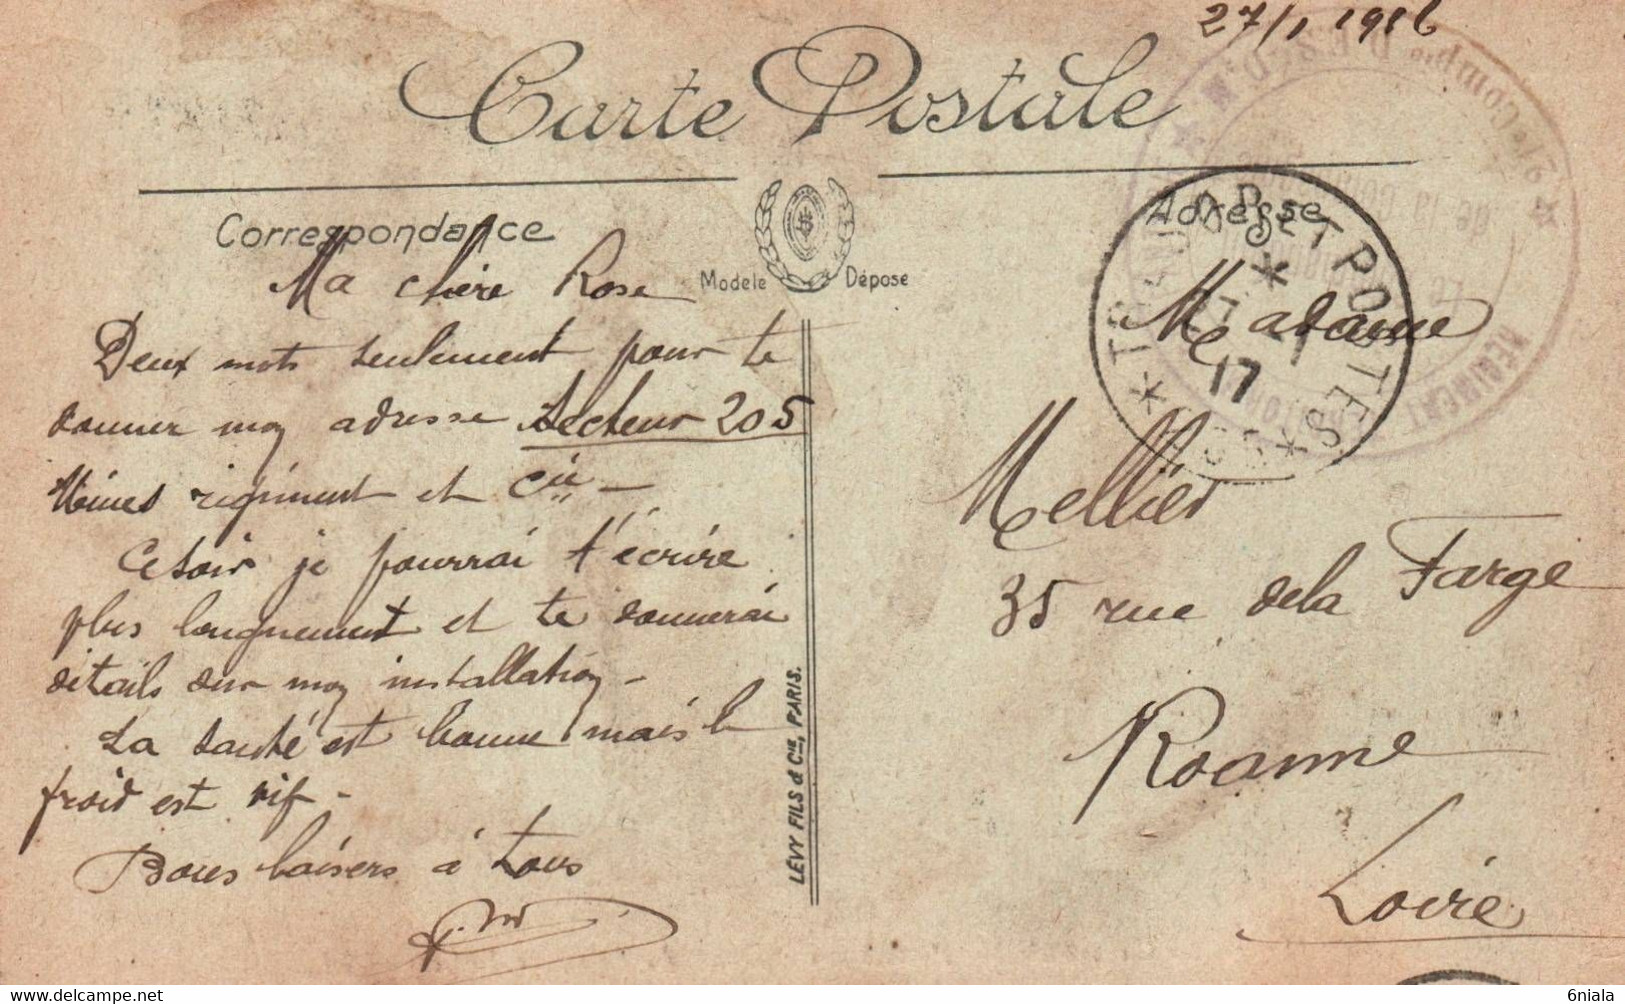 27/1 1916
Carte Postale
Correspondance
Adresse
Modèle Déposé
TRESOR ET POSTES
17
REGIMENT
Ma chère Rose
Deux mots seulement pour te
donner mon adresse Secteur 205
Mêmes régiment et Cie –
Ce soir je pourrai t'écrire
plus longuement et te donnerai
détails sur mon installation –
La santé est bonne mais le
froid est vif –
Bons baisers à tous
LEVY FILS & Cie, PARIS.
Madame
Mellier
35 rue de la Farge
Roanne
Loire
6niala